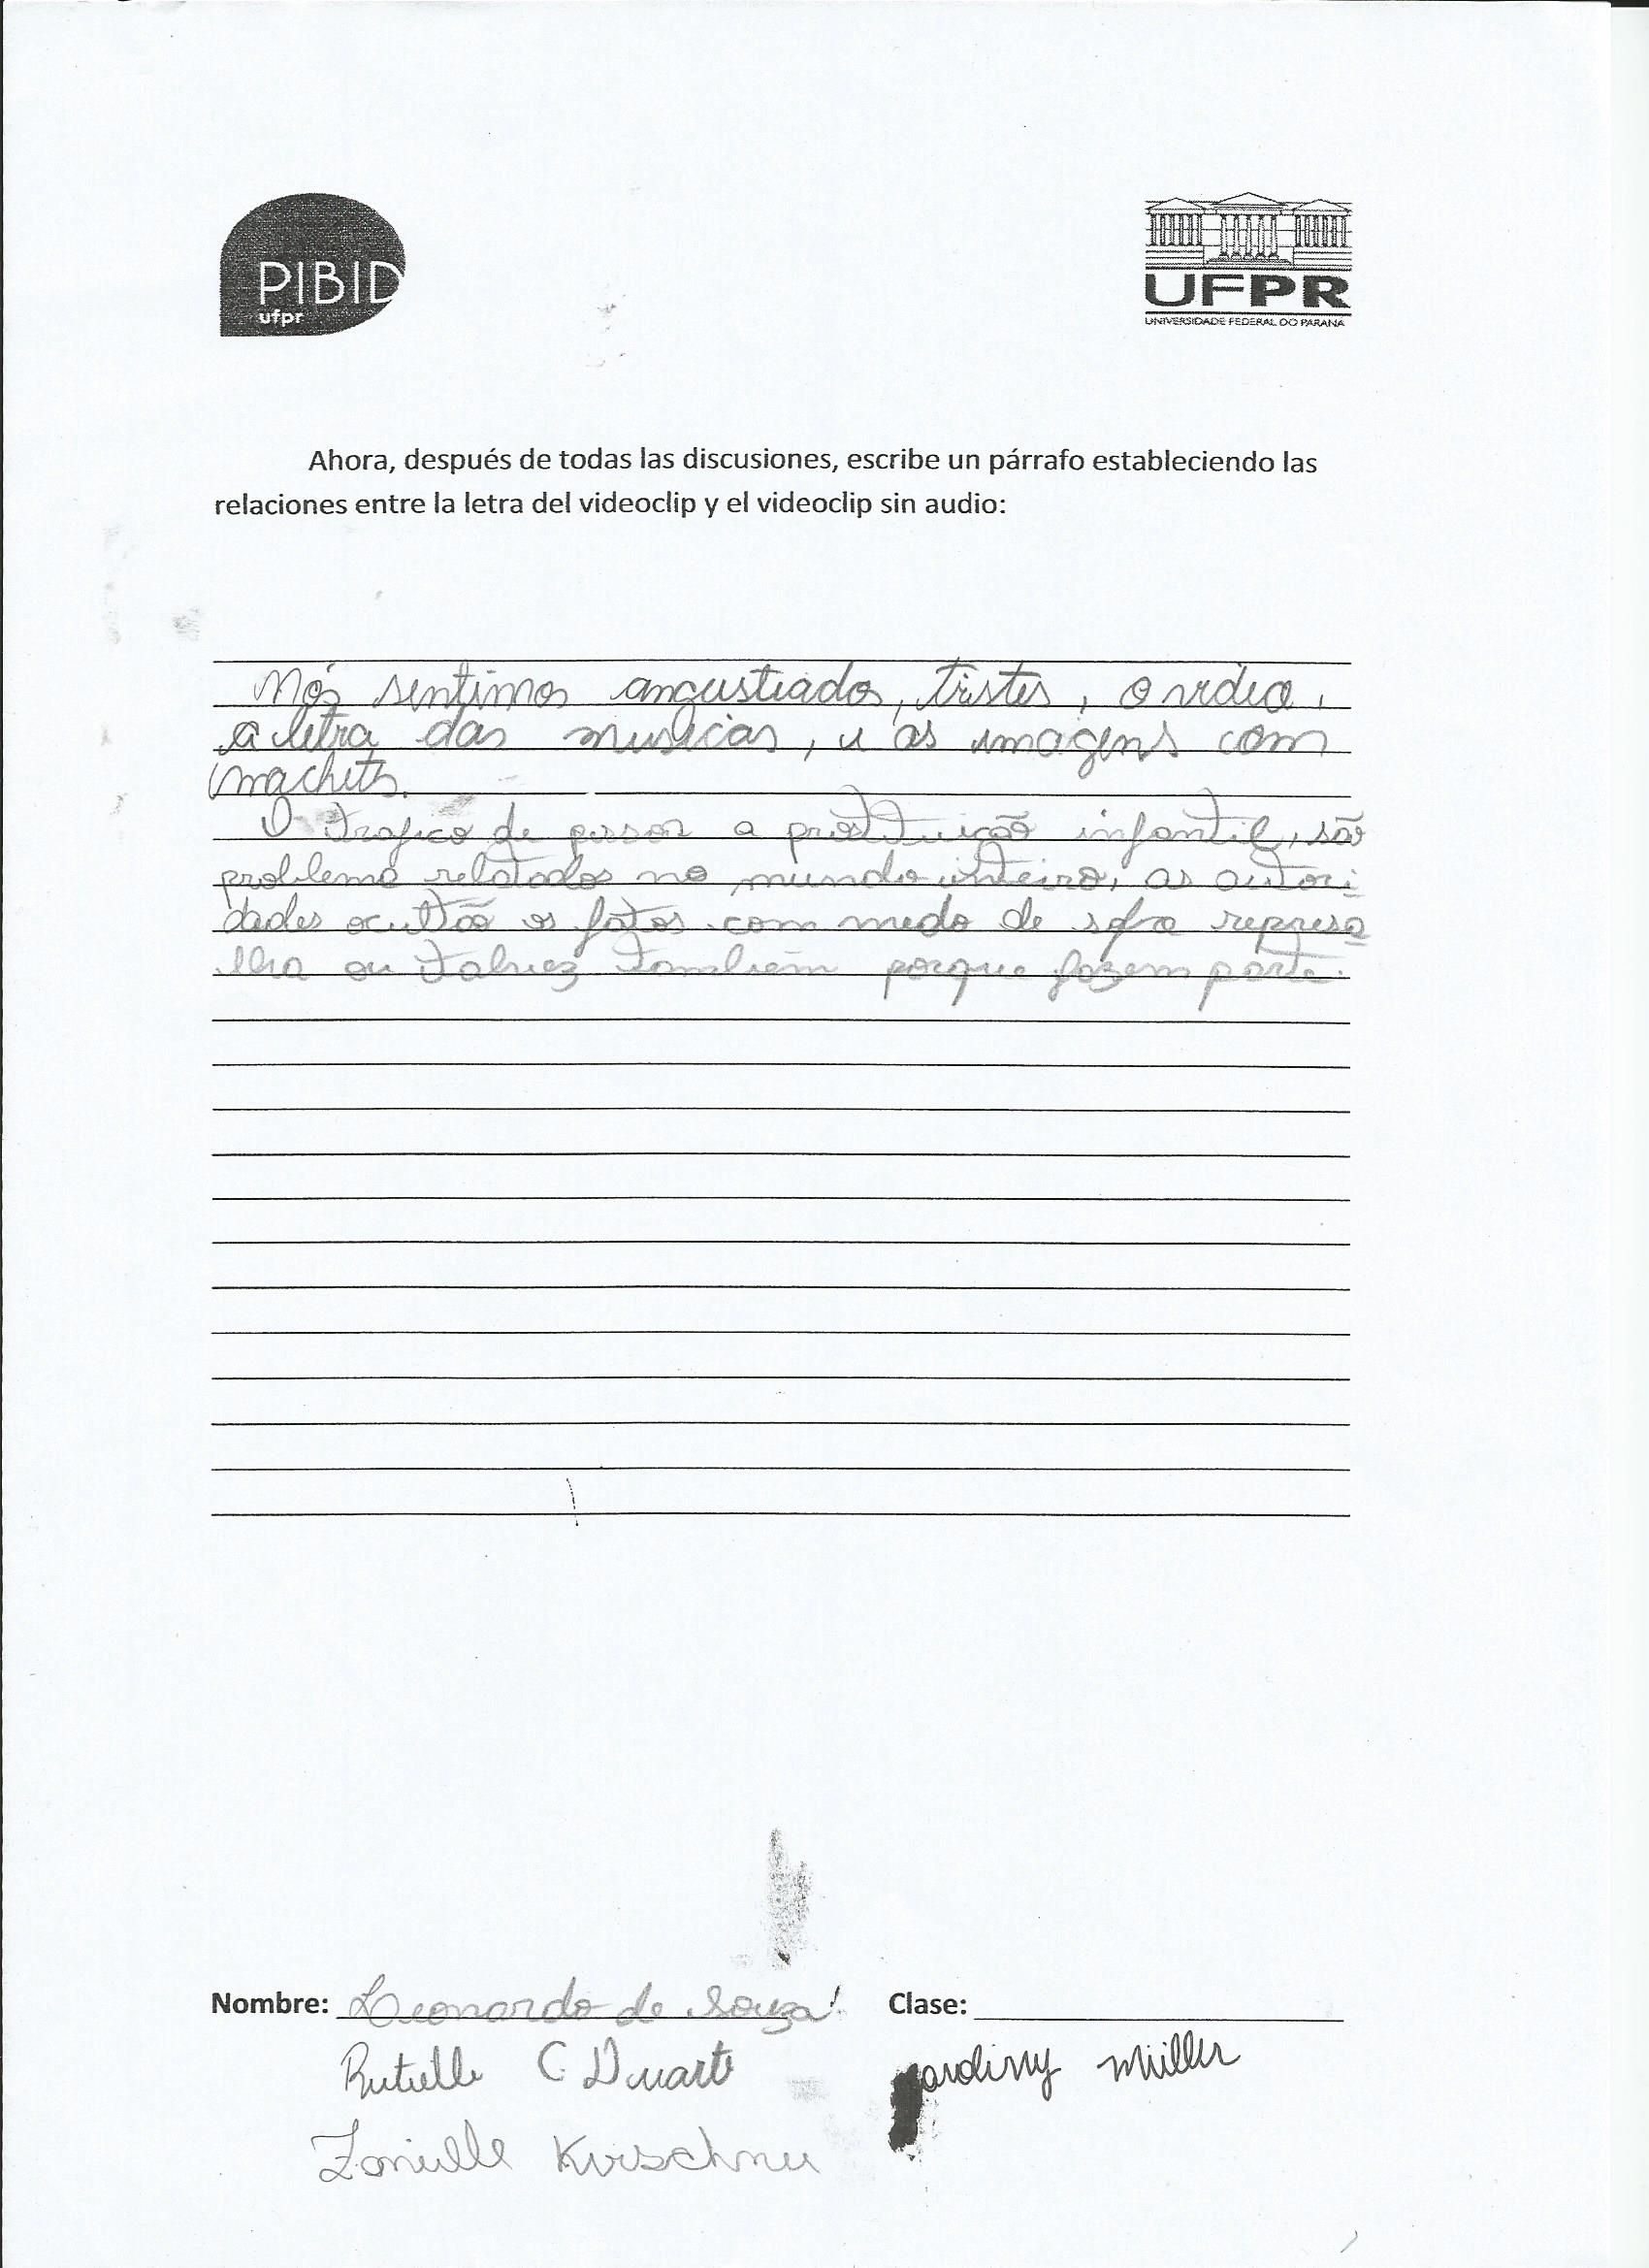 PIBID
ufpr
UFPR
UNIVERSIDADE FEDERAL DO PARANÁ
Ahora, después de todas las discusiones, escribe un párrafo estableciendo las
relaciones entre la letra del videoclip y el videoclip sin audio:
Nós sentimos angustiados, tristes, o video,
a letra das musicas, e as imagens com
machets.
O trafico de pessoa a prostituição infantil, são
problema relatados no mundo inteiro, as autori
dades ocultão os fatos com medo de sofre represa
lha ou talvez também porque fazem parte.
Nombre: Leonardo de Souza! Clase:
C Duarte Müller
Kirschner